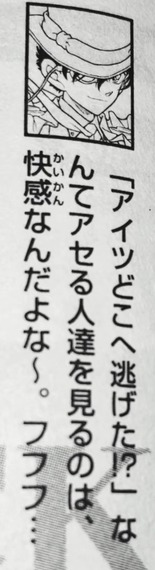 「アイツどこへ逃げた!?」な
んてアセる人達を見るのは、
快感なんだよな～。フフフ…
かいかん